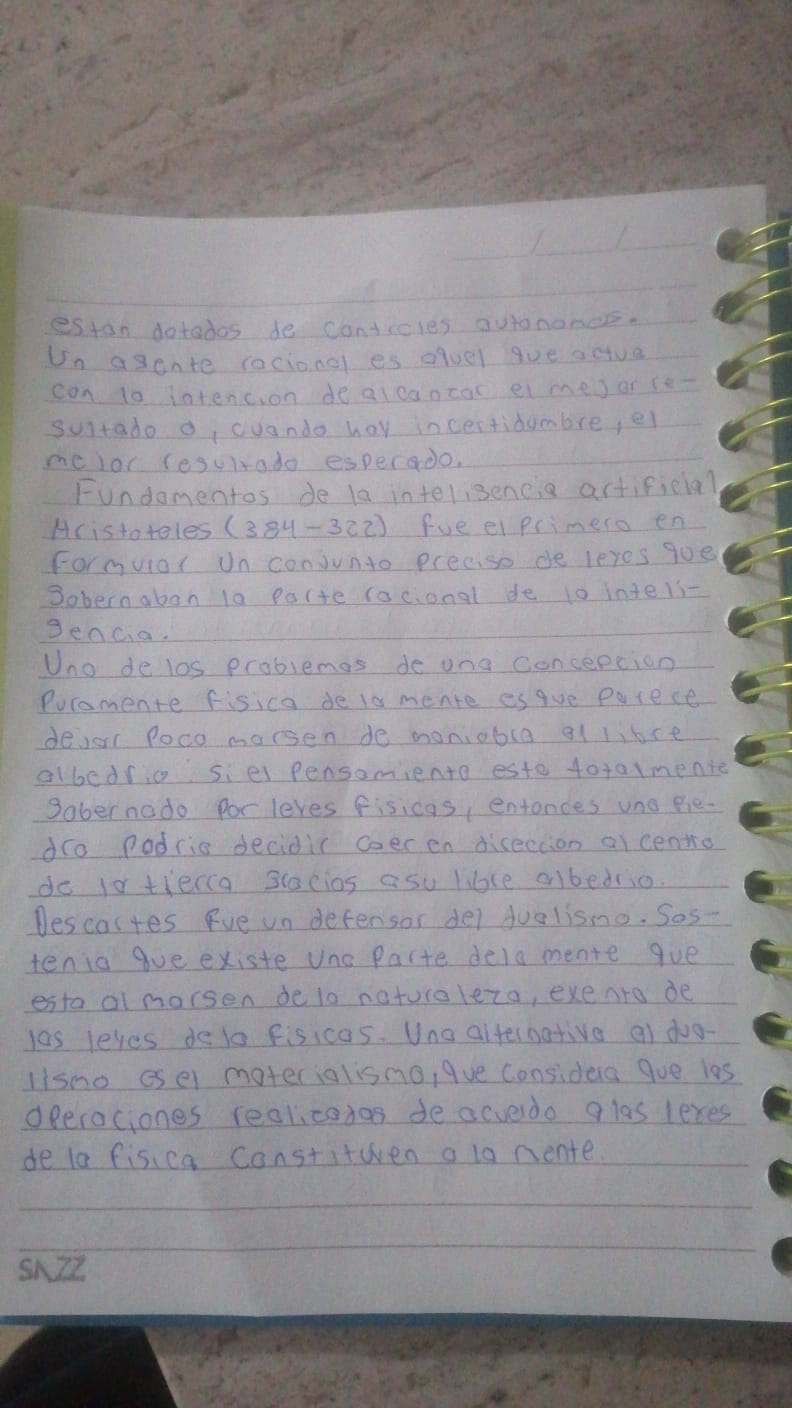 / /
estan dotados de controles autonomos.
Un agente racional es aquel que actua
con la intencion de alcanzar el mejor re-
sultado o, cuando hay incertidumbre, el
mejor resultado esperado.
Fundamentos de la inteligencia artificial
Aristoteles (384-322) fue el primero en
formular un conjunto preciso de leyes que
gobernaban la parte racional de la inteli-
gencia.
Uno de los problemas de una concepcion
Puramente fisica de la mente es que parece
dejar poco margen de maniobra al libre
albedrio. Si el pensamiento esta totalmente
gobernado por leyes fisicas, entonces una pie-
dra podria decidir caer en direccion al centro
de la tierra gracias a su libre albedrio.
Descartes fue un defensor del dualismo. Sos-
tenia que existe una parte de la mente que
esta al margen de la naturaleza, exenta de
las leyes de la fisicas. Una alternativa al dua-
lismo es el materialismo, que considera que las
operaciones realizadas de acuerdo a las leyes
de la fisica constituyen a la mente.
SAZZ